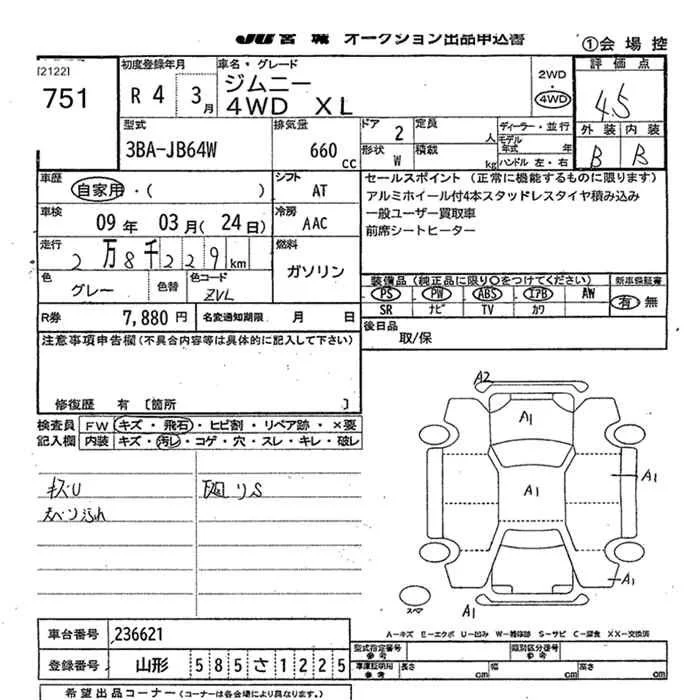 JU 宮城 オークション出品申込書
①会場控
[2122]
751
初度登録年月
R 4 3月
車名・グレード
ジムニー
4WD XL
2WD
・
4WD
評価点
4.5
外装 内装
B B
型式
3BA-JB64W
排気量
660 cc
ドア 2
形状 W
定員 人
積載 kg
ディーラー・並行
モデル年式 年
ハンドル 左・右
車歴
自家用・( )
シフト
AT
車検
09年 03月(24日)
冷房
AAC
走行
2万8千229km
燃料
ガソリン
色
グレー
色替
色コード
ZVL
R券 7,880円
名変通知期限 月 日
セールスポイント(正常に機能するものに限ります)
アルミホイール付4本スタッドレスタイヤ積み込み
一般ユーザー買取車
前席シートヒーター
装備品(純正品に限り○をつけてください)
PS PW ABS エアB AW
SR ナビ TV カワ
新車保証書
有 無
後日品
取/保
注意事項申告欄(不具合内容等は具体的に記入して下さい)
修復歴 有 [箇所 ]
検査員 FW キズ・飛石・ヒビ割・リペア跡・×要
記入欄 内装 キズ・汚れ・コゲ・穴・スレ・キレ・破レ
キズU
A2
A1
A1
A1
A1
A1
スペア
A-キズ E-エクボ U-凹み W-補修跡 S-サビ C-腐食 XX-交換済
車台番号 236621
登録番号 山形 585さ1225
型式指定番号
参考
類別区分番号
参考
車庫証明用
参考
長さ cm 幅 cm 高さ cm
希望出品コーナー(コーナーは各会場により異なります。)